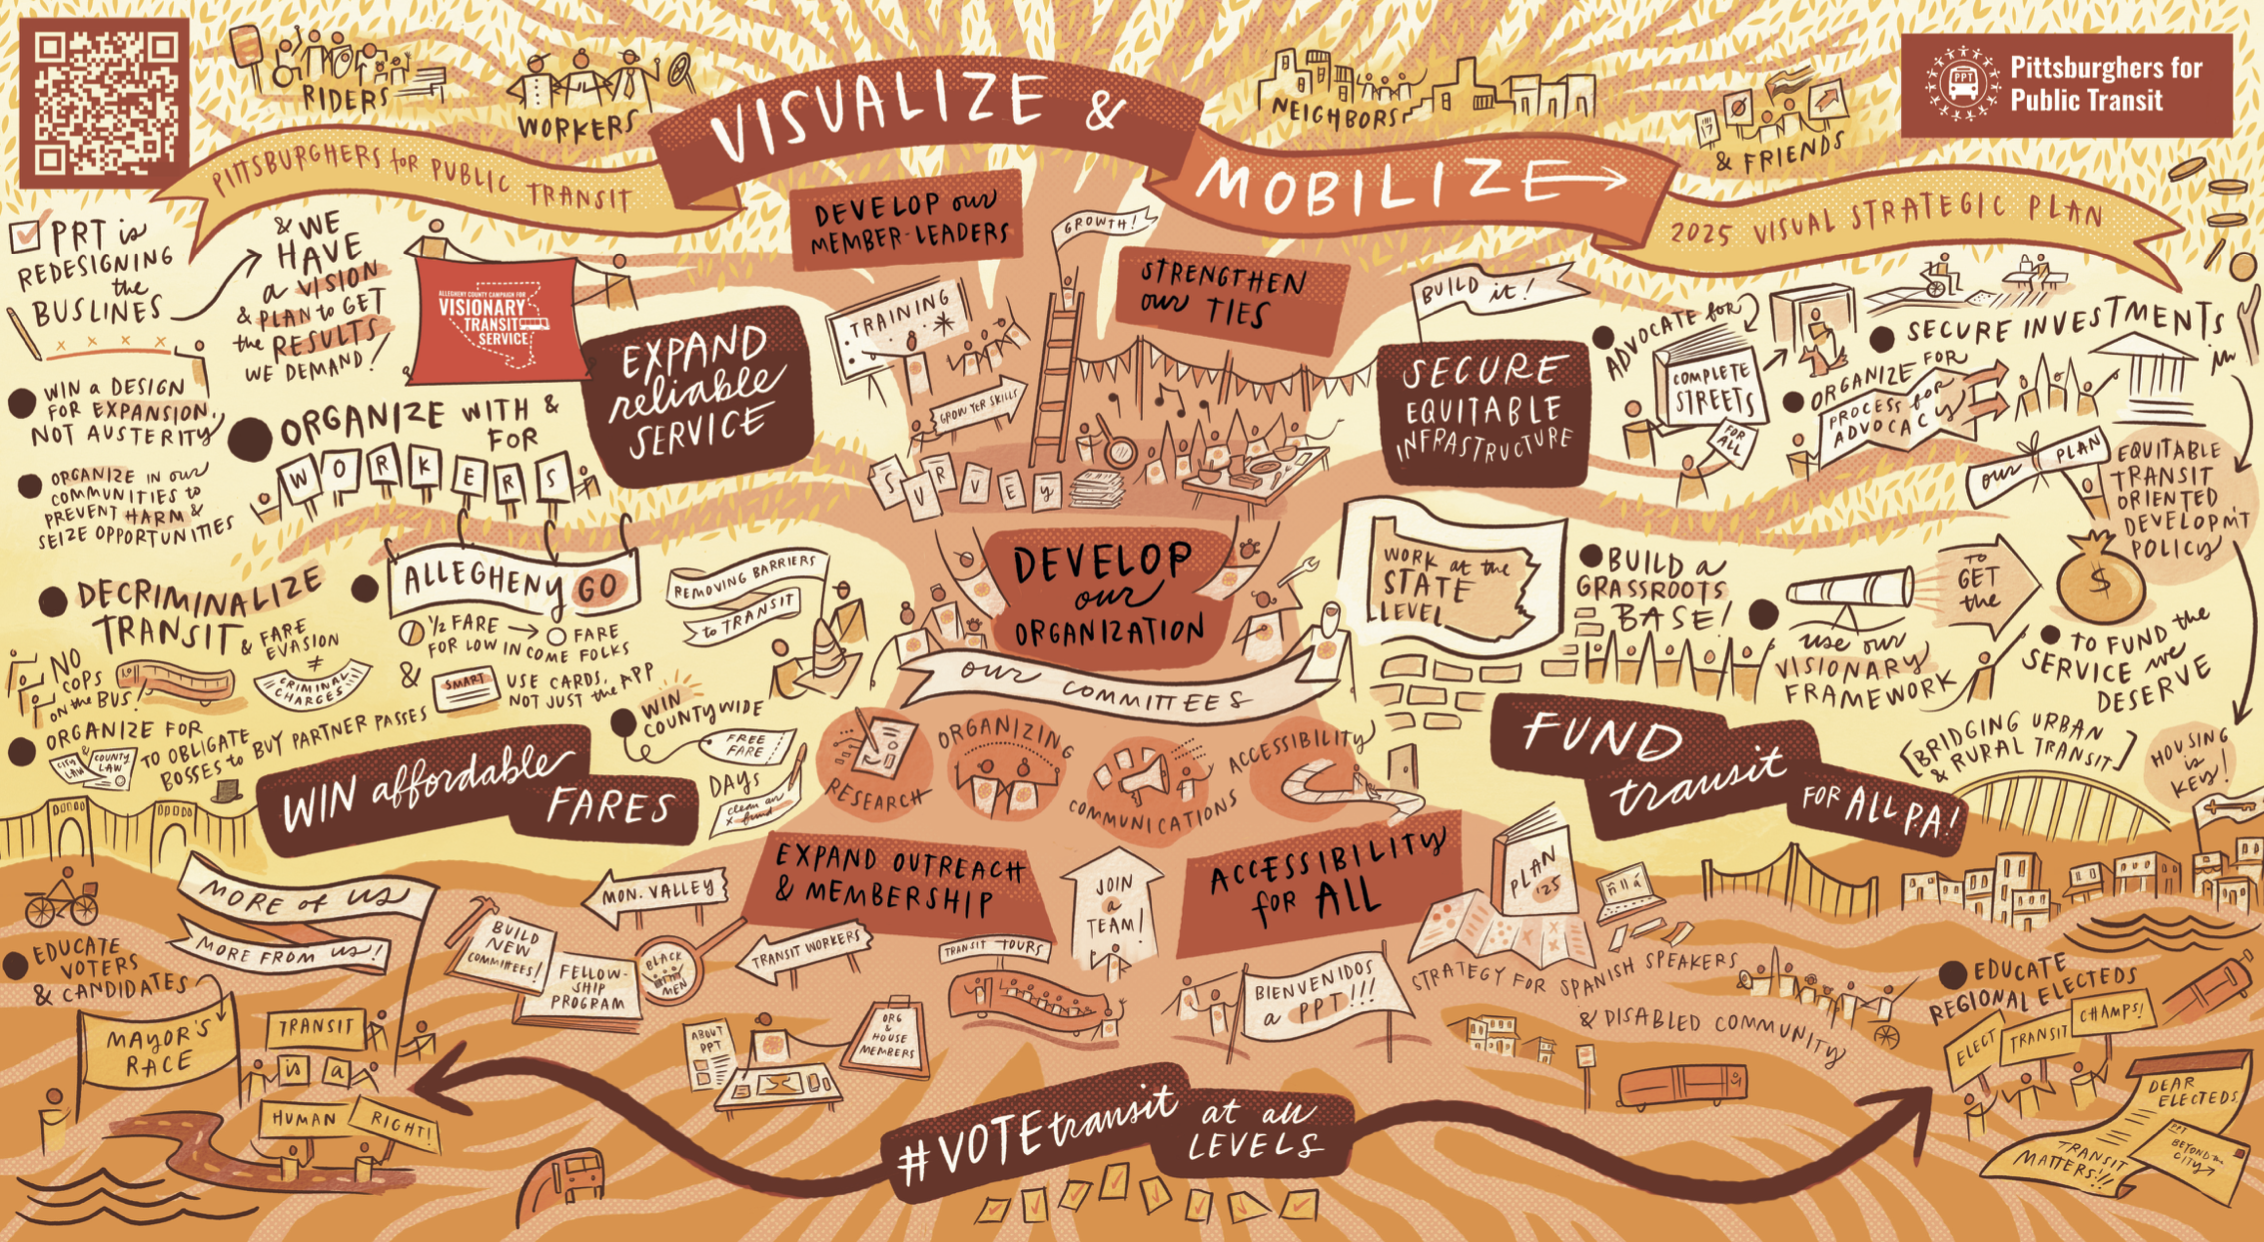 RIDERS
WORKERS
VISUALIZE &
MOBILIZE
NEIGHBORS
17
& FRIENDS
PPT
Pittsburghers for
Public Transit
PITTSBURGHERS for PUBLIC TRANSIT
2025 VISUAL STRATEGIC PLAN
PRT is
REDESIGNING
the
BUSLINES
& WE
HAVE
a VISION
& PLAN to GET
the RESULTS
WE DEMAND!
ALLEGHENY COUNTY CAMPAIGN FOR
VISIONARY
TRANSIT
SERVICE
EXPAND
reliable
SERVICE
WIN a DESIGN
FOR EXPANSION,
NOT AUSTERITY
ORGANIZE IN our
COMMUNITIES to
PREVENT HARM &
SEIZE OPPORTUNITIES
ORGANIZE WITH &
FOR
WORKERS
DECRIMINALIZE
TRANSIT
& FARE
EVASION
≠
CRIMINAL
CHARGES
NO
COPS
ON the BUS!
ALLEGHENY GO
1/2 FARE → O FARE
FOR LOW INCOME FOLKS
&
SMART
USE CARDS,
NOT JUST the APP
REMOVING BARRIERS
to TRANSIT
ORGANIZE FOR
CITY
LAW
&
COUNTY
LAW
TO OBLIGATE
BOSSES to BUY PARTNER PASSES
WIN
COUNTYWIDE
FREE
FARE
DAYS
clean air
fund
WIN affordable
FARES
DEVELOP our
MEMBER-LEADERS
GROWTH!
STRENGTHEN
our TIES
TRAINING
GROW YER SKILLS
SURVEY
DEVELOP
our
ORGANIZATION
OUR COMMITTEES
RESEARCH
ORGANIZING
COMMUNICATIONS
ACCESSIBILITY
EXPAND OUTREACH
& MEMBERSHIP
JOIN
a
TEAM!
ACCESSIBILITY
for ALL
MON. VALLEY
BUILD
NEW
COMMITTEES!
FELLOW-
SHIP
PROGRAM
BLACK
MEN
TRANSIT WORKERS
TRANSIT TOURS
ABOUT
PPT
ORG
&
HOUSE
MEMBERS
BIENVENIDOS
a PPT!!!
PLAN
'25
ñ ll á
STRATEGY FOR SPANISH SPEAKERS
& DISABLED COMMUNITY
BUILD it!
SECURE
EQUITABLE
INFRASTRUCTURE
ADVOCATE for
COMPLETE
STREETS
FOR
ALL
ORGANIZE FOR
PROCESS for
ADVOCACY
SECURE INVESTMENTS
in
OUR PLAN
EQUITABLE
TRANSIT
ORIENTED
DEVELOPM'T
POLICY
HOUSING
is
KEY!
WORK at the
STATE
LEVEL
BUILD a
GRASSROOTS
BASE!
use our
VISIONARY
FRAMEWORK
TO
GET
the
$
TO FUND the
SERVICE we
DESERVE
FUND
transit
FOR ALL PA!
[BRIDGING URBAN
& RURAL TRANSIT]
MORE of US
MORE FROM US!
EDUCATE
VOTERS
& CANDIDATES
MAYOR'S
RACE
TRANSIT
is a
HUMAN RIGHT!
#VOTE transit at all
LEVELS
EDUCATE
REGIONAL ELECTEDS
ELECT TRANSIT CHAMPS!
DEAR
ELECTEDS
TRANSIT
MATTERS!!!
BEYOND the
CITY